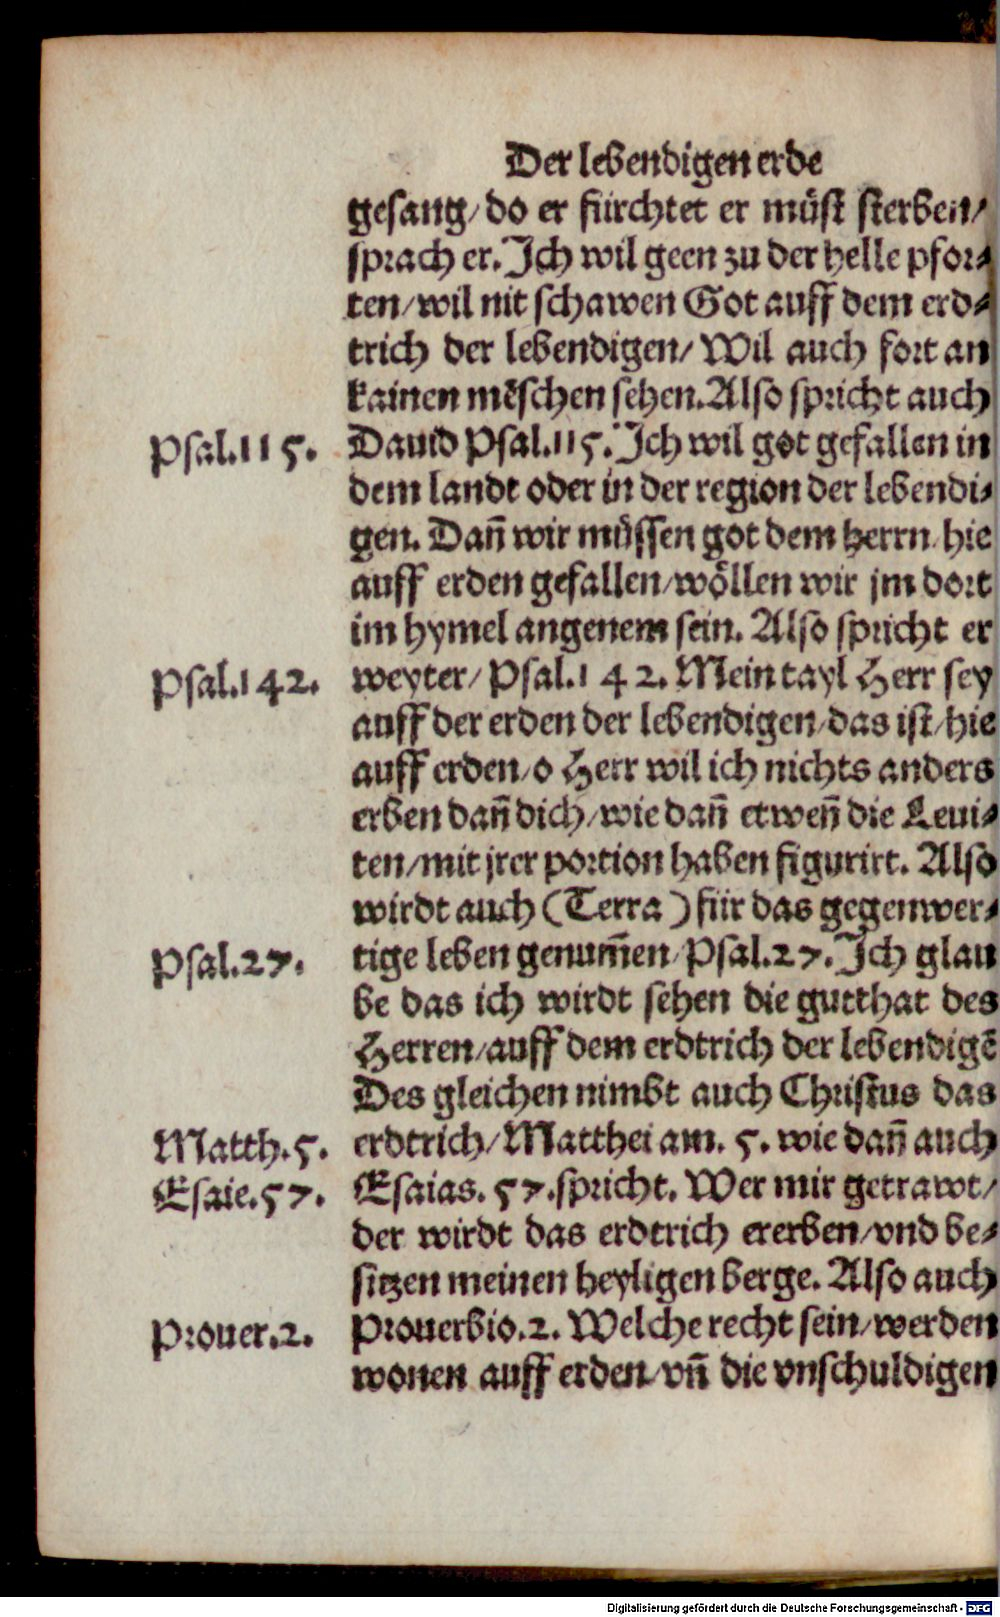 Der lebendigen erde
gesang/ do er fürchtet er müst sterben/
sprach er. Ich wil geen zu der helle pfor⸗
ten/ wil nit schawen Got auff dem erd⸗
trich der lebendigen/ Wil auch fort an
kainen mēschen sehen. Also spricht auch
Psal.115. Dauid Psal.115. Ich wil got gefallen in
dem landt oder in der region der lebendi⸗
gen. Dañ wir müssen got dem herrn/ hie
auff erden gefallen/ wöllen wir jm dort
im hymel angenem sein. Also spricht er
Psal.142. weyter/ Psal.142. Mein tayl Herr sey
auff der erden der lebendigen/ das ist/ hie
auff erden/ o Herr wil ich nichts anders
erben dañ dich/ wie dañ etweñ die Leui⸗
ten/ mit jrer portion haben figurirt. Also
wirdt auch (Terra) für das gegenwer⸗
Psal.27. tige leben genum̃en/ Psal.27. Ich glau
be das ich wirdt sehen die gutthat des
Herren/ auff dem erdtrich der lebendigē
Des gleichen nimbt auch Christus das
Matth.5. erdtrich/ Matthei am. 5. wie dañ auch
Esaie.57. Esaias. 57. spricht. Wer mir getrawt/
der wirdt das erdtrich ererben/ vnd be⸗
sitzen meinen heyligen berge. Also auch
Prouer.2. Prouerbio.2. Welche recht sein/ werden
wonen auff erden/ vñ die vnschuldigen
Digitalisierung gefördert durch die Deutsche Forschungsgemeinschaft - DFG